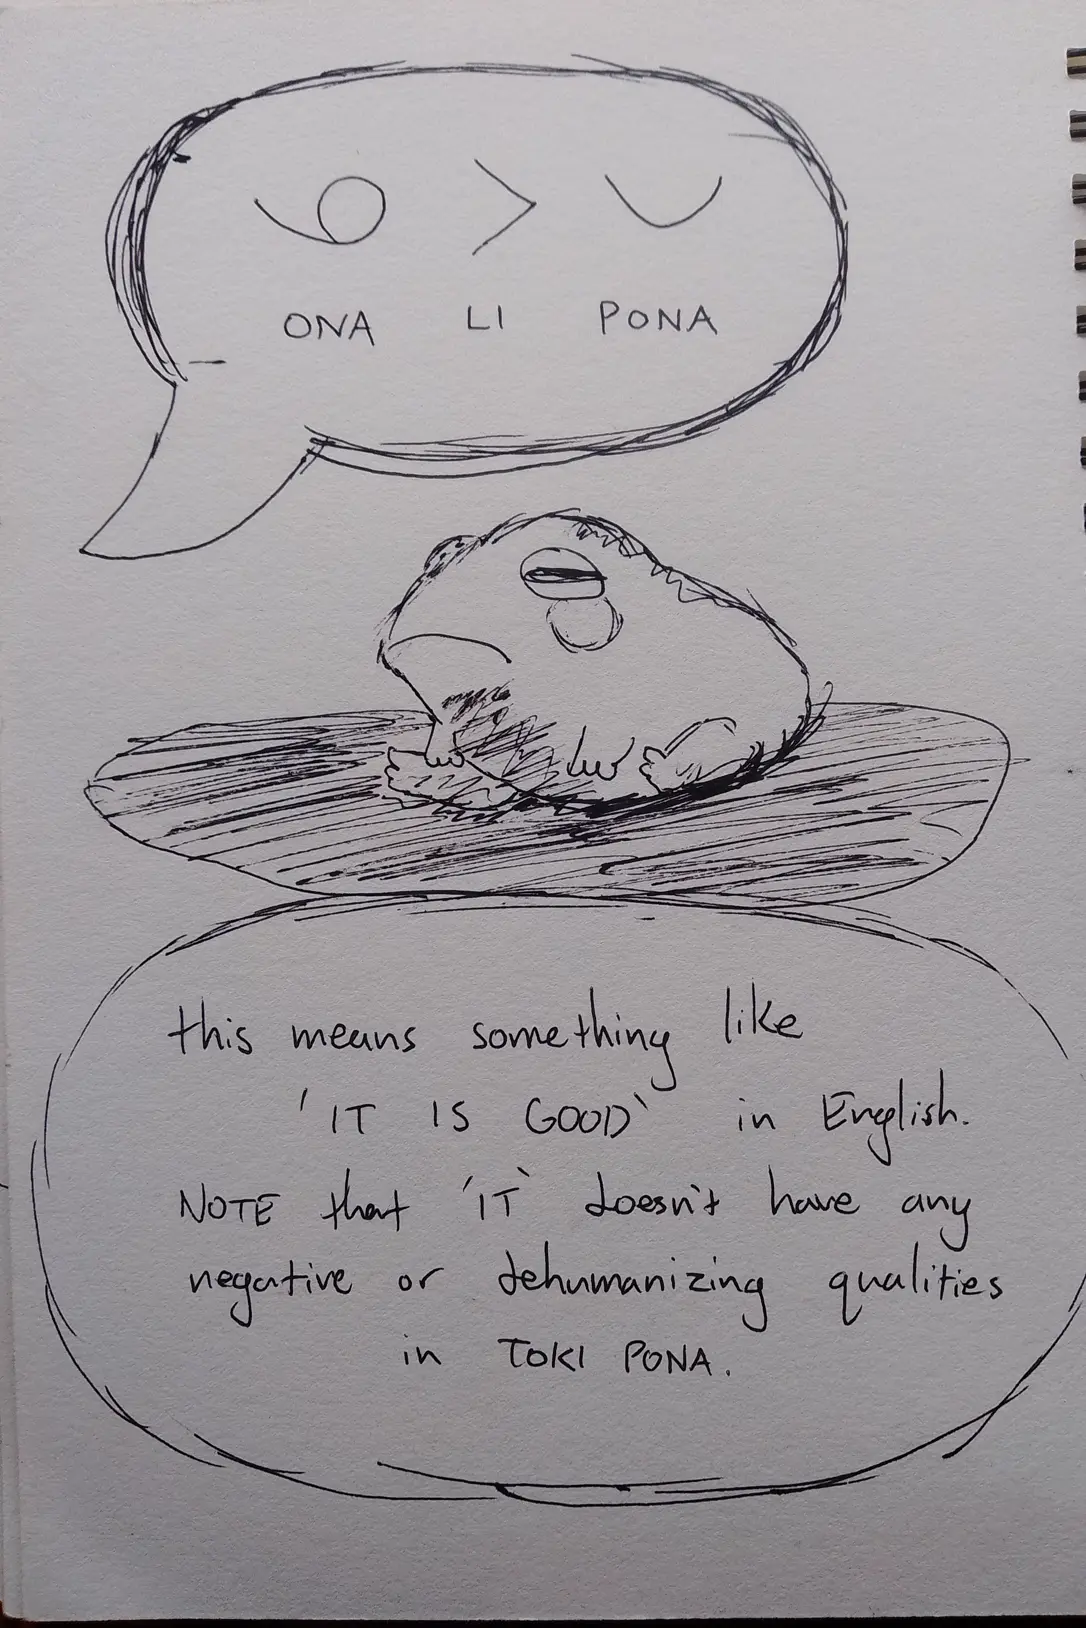 ONA LI PONA
this means something like
'IT IS GOOD' in English.
NOTE that 'IT' doesn't have any
negative or dehumanizing qualities
in TOKI PONA.